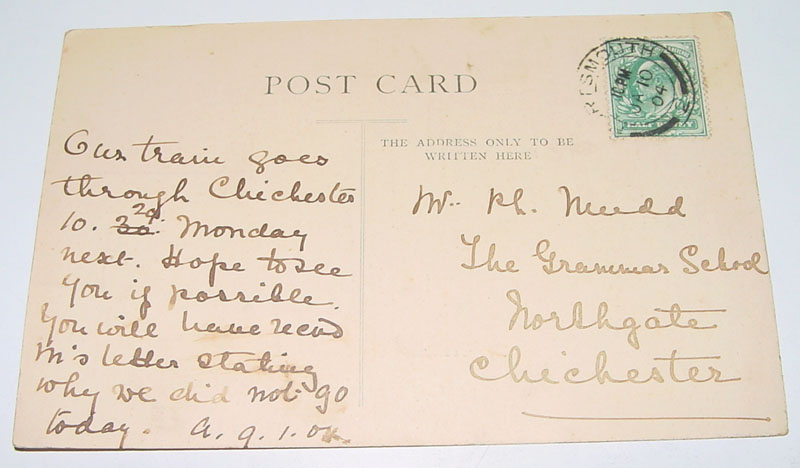 POST CARD
THE ADDRESS ONLY TO BE
WRITTEN HERE
Our train goes
through Chichester
10. 30. 29. Monday
next. Hope to see
you if possible.
You will have recd
M's letter stating
why we did not go
today. A. 9.1.04.
Mr. Ph. Mudd
The Grammar School
Northgate
Chichester
RTSMOUTH
PM
JA 10
04